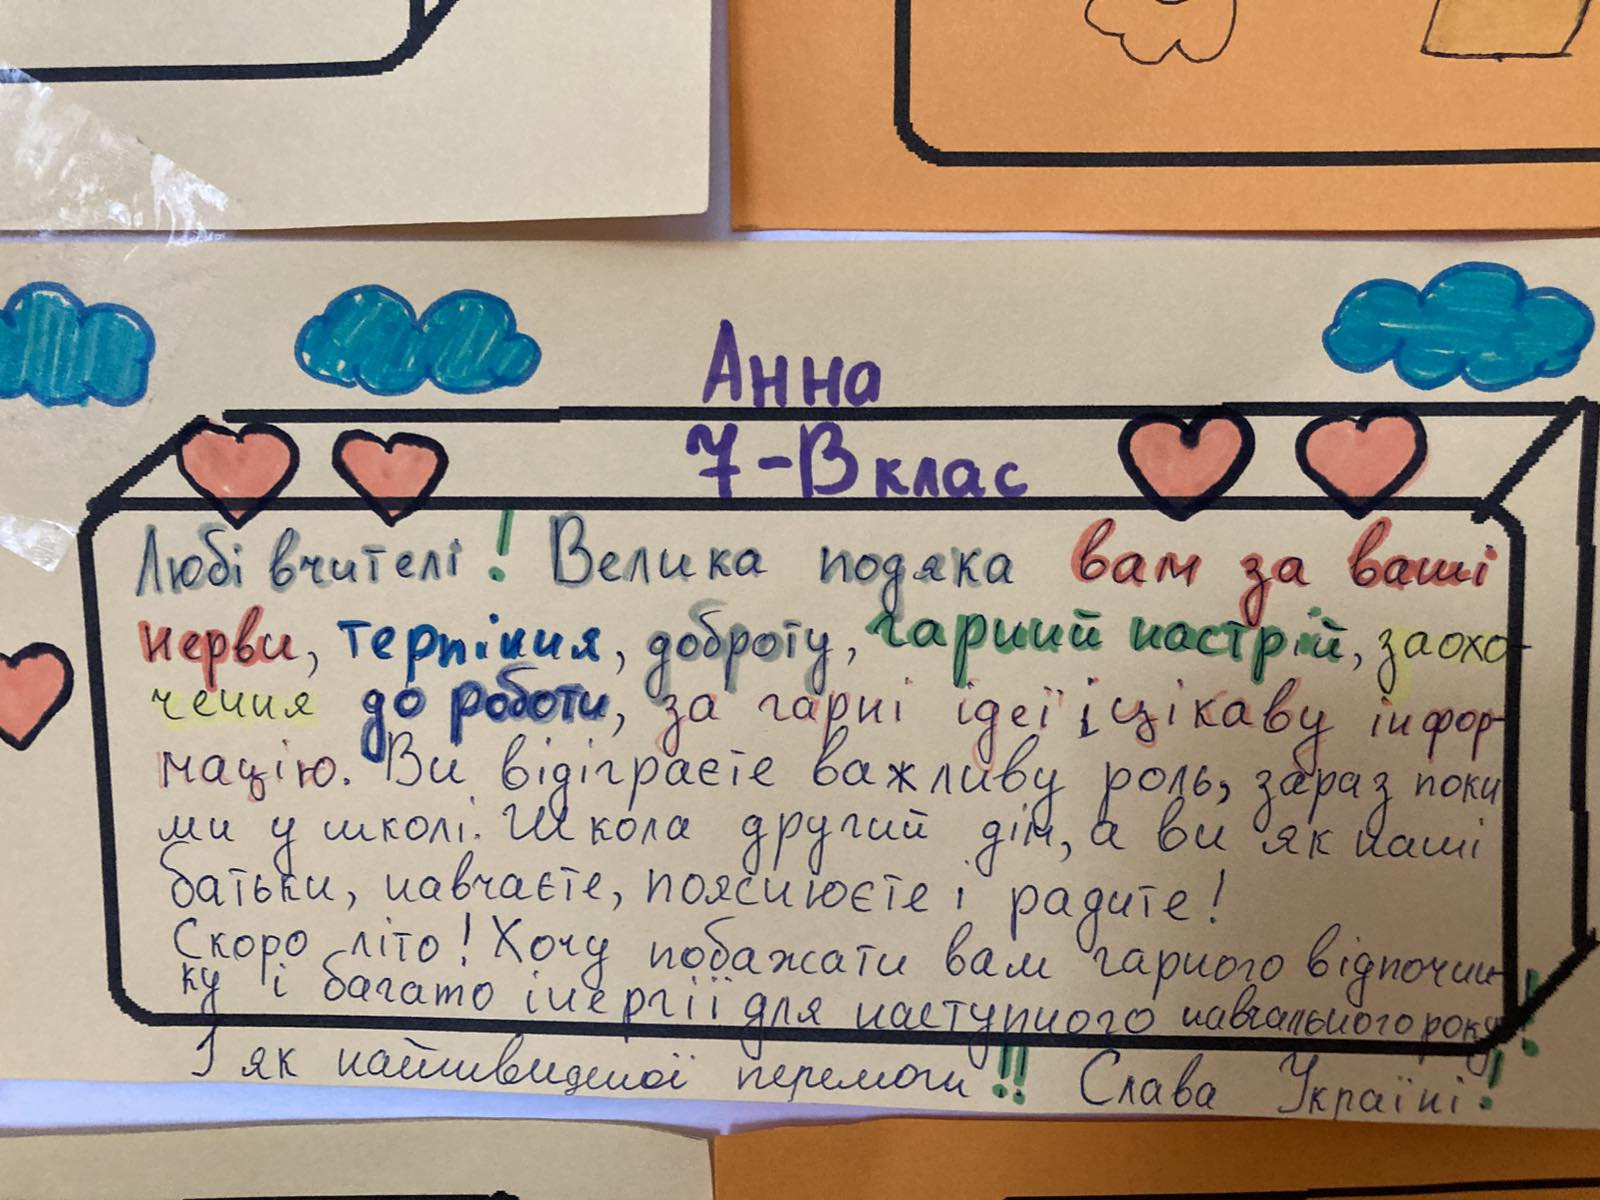 Анна
7-В клас
Любі вчителі! Велика подяка вам за ваші
нерви, терпіння, доброту, гарний настрій, заохо-
чення до роботи, за гарні ідеї і цікаву інфор-
мацію. Ви відіграєте важливу роль, зараз поки
ми у школі. Школа другий дім, а ви як наші
батьки, навчаєте, пояснюєте і радите!
Скоро літо! Хочу побажати вам гарного відпочин-
ку і багато інергії для наступного навчального року!
І як найшвидшої перемоги!! Слава Україні!